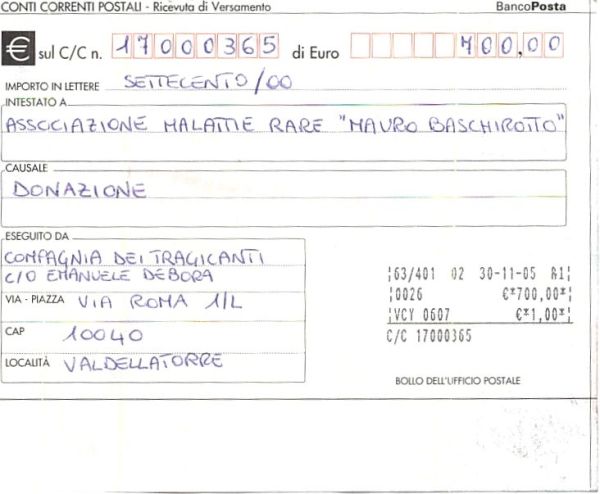 CONTI CORRENTI POSTALI - Ricevuta di Versamento BancoPosta
€ sul C/C n. 17000365 di Euro 700,00
IMPORTO IN LETTERE SETTECENTO/00
INTESTATO A
ASSOCIAZIONE MALATTIE RARE "MAURO BASCHIROTTO"
CAUSALE
DONAZIONE
ESEGUITO DA
COMPAGNIA DEI TRAGICANTI
C/O EMANUELE DEBORA
VIA - PIAZZA VIA ROMA 1/L
CAP 10040
LOCALITÀ VALDELLATORRE
¦63/401 02 30-11-05 R1¦
¦0026 €*700,00*¦
¦VCY 0607 €*1,00*¦
C/C 17000365
BOLLO DELL'UFFICIO POSTALE